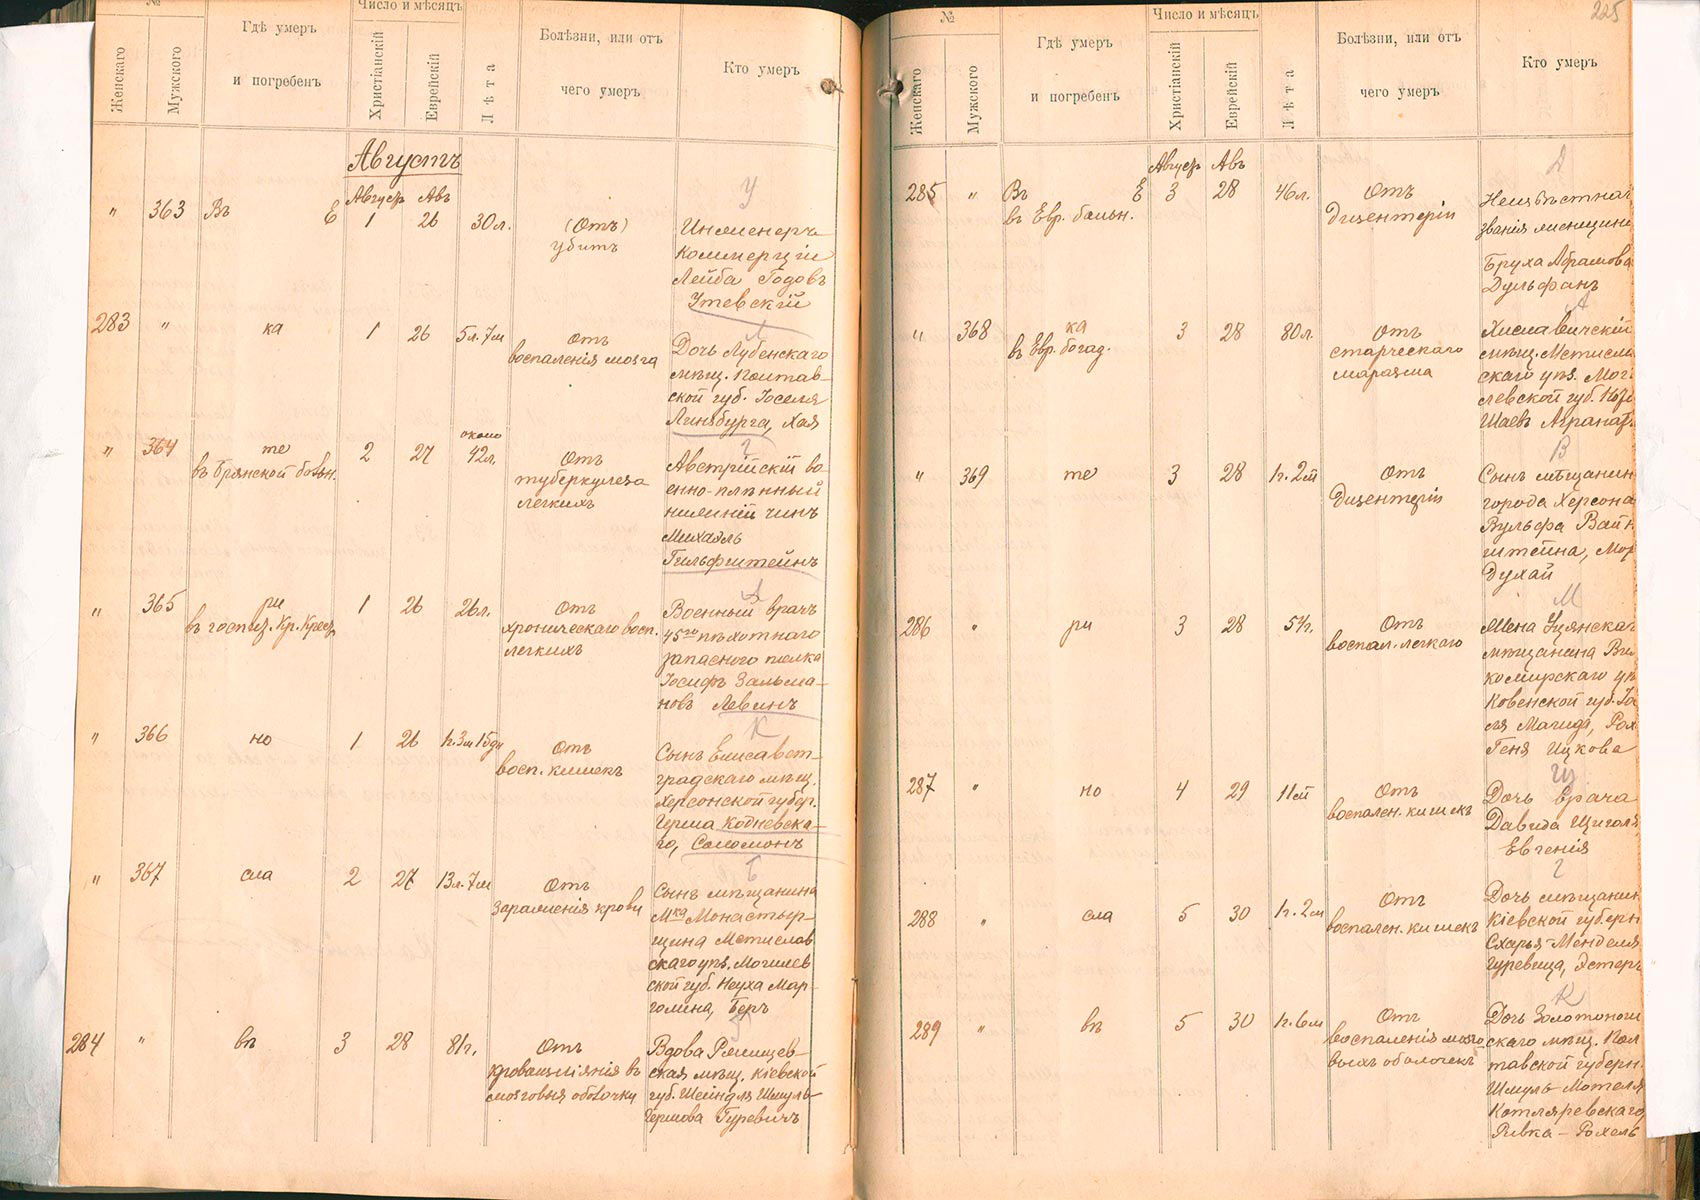 №
Женскаго
Мужского
Гдѣ умеръ
и погребенъ
Число и мѣсяцъ
Христіанскій
Еврейскій
Лѣта
Болѣзни, или отъ
чего умеръ
Кто умеръ
Августъ
Август Авъ
У
" 363 Въ Е 1 26 30 л. (Отъ)
убитъ
Инженеръ
Коммерціи
Лейба Годовъ
Утевскій
283 " ка 1 26 5 л. 7 м Отъ
воспаленія мозга
Л
Дочь Лубенскаго
мѣщ. Полтав-
ской губ. Іоселя
Линзбурга, Хая
" 364 те
въ Брянской больн.
2 27 около
42 л. Отъ
туберкулеза
легкихъ
Г
Австрійскій во-
енно-плѣнный
нижній чинъ
Михаэль
Гильфштейнъ
" 365 ри
въ госпит. Кр. Креста
1 26 26 л. Отъ
хроническаго восп.
легкихъ
Л
Военный врачъ
45го пѣхотнаго
запасного полка
Іосифъ Зальма-
новъ Левинъ
" 366 но 1 26 1 г. 3 м 15 дн Отъ
восп. кишекъ
К
Сынъ Елисавет-
градскаго мѣщ.
Херсонской губер.
Герша Кодневска-
го, Соломонъ
" 367 сла 2 27 13 л. 7 м Отъ
зараженія крови
Б
Сынъ мѣщанина
Мка Монастыр-
щина Мстислав
скаго уѣз. Могилев
ской губ. Неуха Мар-
голина, Беръ
284 " въ 3 28 81 г. Отъ
кровоизліянія въ
мозговыя оболочки
Вдова Ржищев-
ская мѣщ. Кіевской
губ. Шейндля Шмуль-
Гершова Гуревичъ
225
№
Женскаго
Мужского
Гдѣ умеръ
и погребенъ
Число и мѣсяцъ
Христіанскій
Еврейскій
Лѣта
Болѣзни, или отъ
чего умеръ
Кто умеръ
Август Авъ
Д
285 " Въ Е
въ Евр. больн.
3 28 46 л. Отъ
дизентеріи
Неизвѣстнаго
званія женщина
Бруха Абрамова
Дульфанъ
" 368 ка
въ Евр. богад.
3 28 80 л. Отъ
старческаго
маразма
А
Хиславичскій
мѣщ. Мстислав
скаго уѣз. Моги
левской губ.
Шаевъ Агранатъ
" 369 те 3 28 1 г. 2 м Отъ
дизентеріи
В
Сынъ мѣщанина
города Херсона
Вульфа Вайн
штейна, Мор
духай
286 " ри 3 28 54 г. Отъ
воспал. легкаго
М
Жена Уцянскаго
мѣщанина Вил
комирскаго уѣ
Ковенской губ.
ля Магидъ, Рох
Геня Ицкова
287 " но 4 29 11 м Отъ
воспален. кишекъ
Щ
Дочь врача
Давида Щиголя,
Евгенія
288 " сла 5 30 1 г. 2 м Отъ
воспален. кишекъ
Г
Дочь мѣщанина
Кіевской губерн
Схарья-Менделя
Гуревича, Эстеръ
289 " въ 5 30 1 г. 6 м Отъ
воспаленія мозго
выхъ оболочекъ
К
Дочь Золотонош
скаго мѣщ. Пол
тавской губерн.
Шмуль-Мотеля
Котляревскаго,
Ривка-Рохель